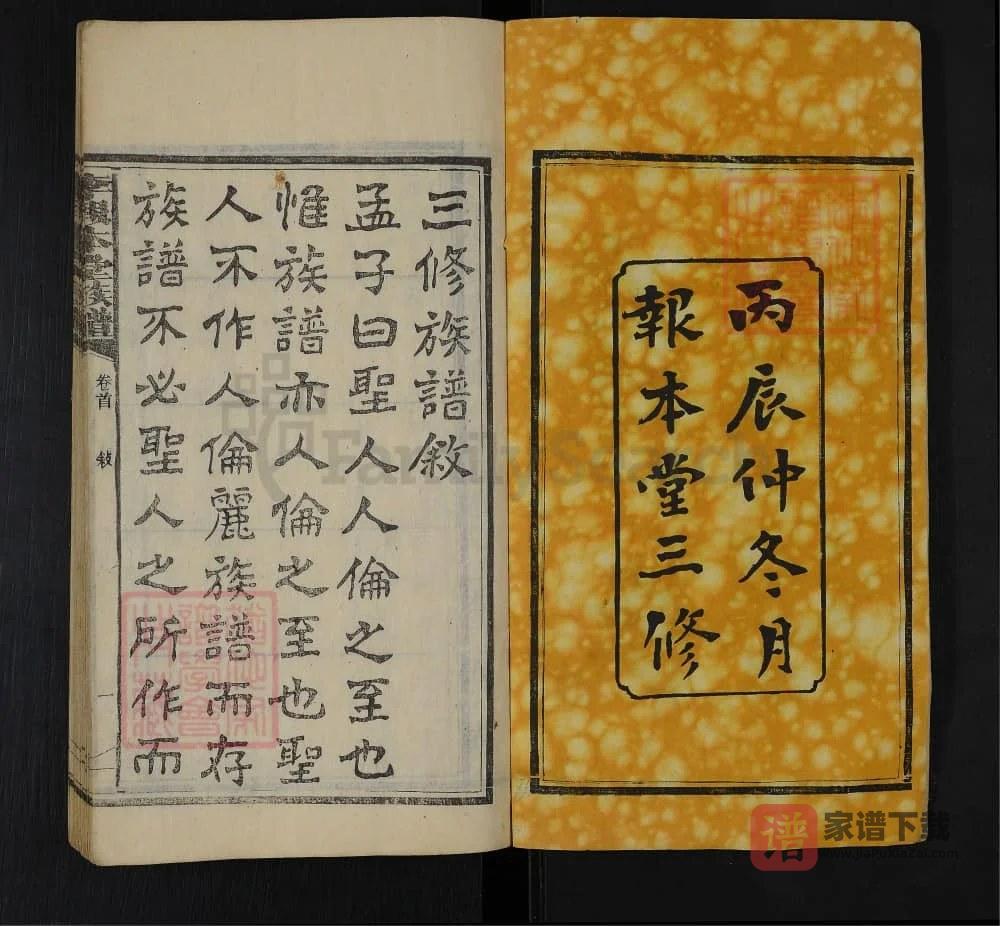 丙辰仲冬月
報本堂三修
三修族譜敘
孟子曰聖人人倫之至也
惟族譜亦人倫之至也聖
人不作人倫麗族譜而存
族譜不必聖人之所作而
本堂族譜
卷首
敍
一
FamilySearch
谱
家谱下载
www.jiapuxiazai.com